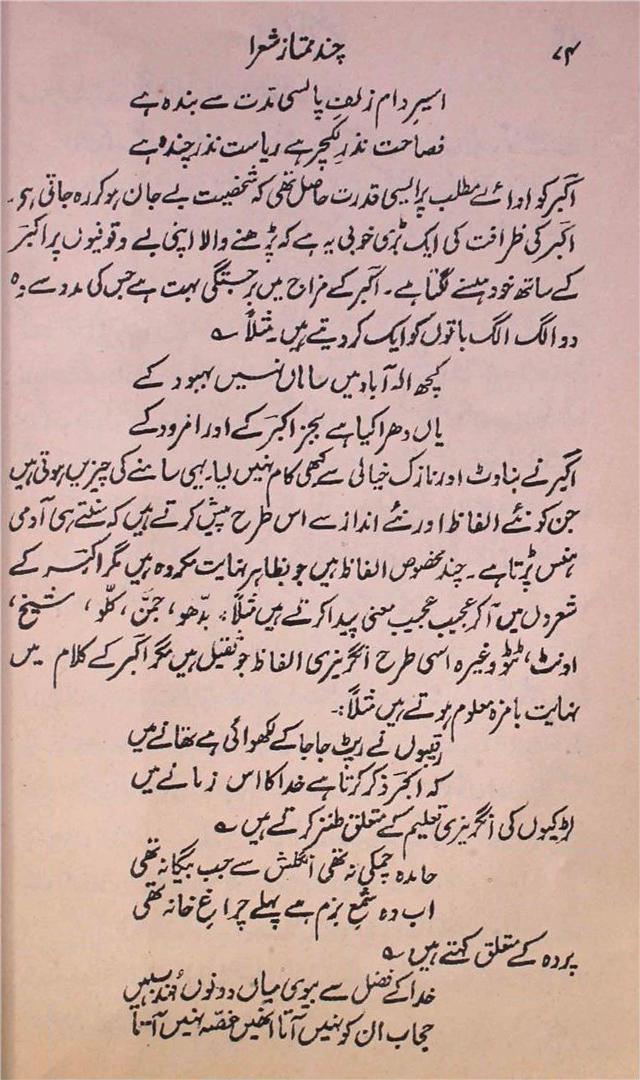 ۷۴ چند ممتاز شعرا
اسیرِ دام زلفِ پالسی مدت سے بندہ ہے
فصاحت نذرِ لکچر ہے ریاست نذرِ چندہ ہے
اکبر کو ادائے مطلب پر ایسی قدرت حاصل تھی کہ شخصیت بے جان ہو کر رہ جاتی ہے۔
اکبر کی ظرافت کی ایک بڑی خوبی یہ ہے کہ پڑھنے والا اپنی بے وقوفیوں پر اکبر
کے ساتھ خود ہنسنے لگتا ہے۔ اکبر کے مزاج میں برجستگی بہت ہے جس کی مدد سے وہ
دو الگ الگ باتوں کو ایک کر دیتے ہیں۔ مثلاً ؎
کچھ الہ آباد میں ساماں نہیں بہبود کے
یاں دھرا کیا ہے بجز اکبر کے اور امرود کے
اکبر نے بناوٹ اور نازک خیالی سے کبھی کام نہیں لیا۔ یہی سامنے کی چیزیں ہوتی ہیں
جن کو نئے الفاظ اور نئے انداز سے اس طرح پیش کرتے ہیں کہ سنتے ہی آدمی
ہنس پڑتا ہے۔ چند مخصوص الفاظ ہیں جو بظاہر نہایت مکروہ ہیں مگر اکبر کے
شعروں میں آکر عجیب عجیب معنی پیدا کرتے ہیں مثلاً: بدّھو، جمّن، کلّو، شیخ،
اونٹ، ٹٹو وغیرہ اسی طرح انگریزی الفاظ جو ثقیل ہیں مگر اکبر کے کلام میں
نہایت بامزہ معلوم ہوتے ہیں مثلاً:۔
رقیبوں نے رپٹ جا جا کے لکھوائی ہے تھانے میں
کہ اکبر ذکر کرتا ہے خدا کا اس زمانے میں
لڑکیوں کی انگریزی تعلیم کے متعلق طنز کرتے ہیں ؎
حامدہ چمکی نہ تھی انگلش سے جب بیگانہ تھی
اب وہ شمع بزم ہے پہلے چراغِ خانہ تھی
پردہ کے متعلق کہتے ہیں ؎
خدا کے فضل سے بیوی میاں دونوں مہذب ہیں
حجاب ان کو نہیں آتا انھیں غصّہ نہیں آتا